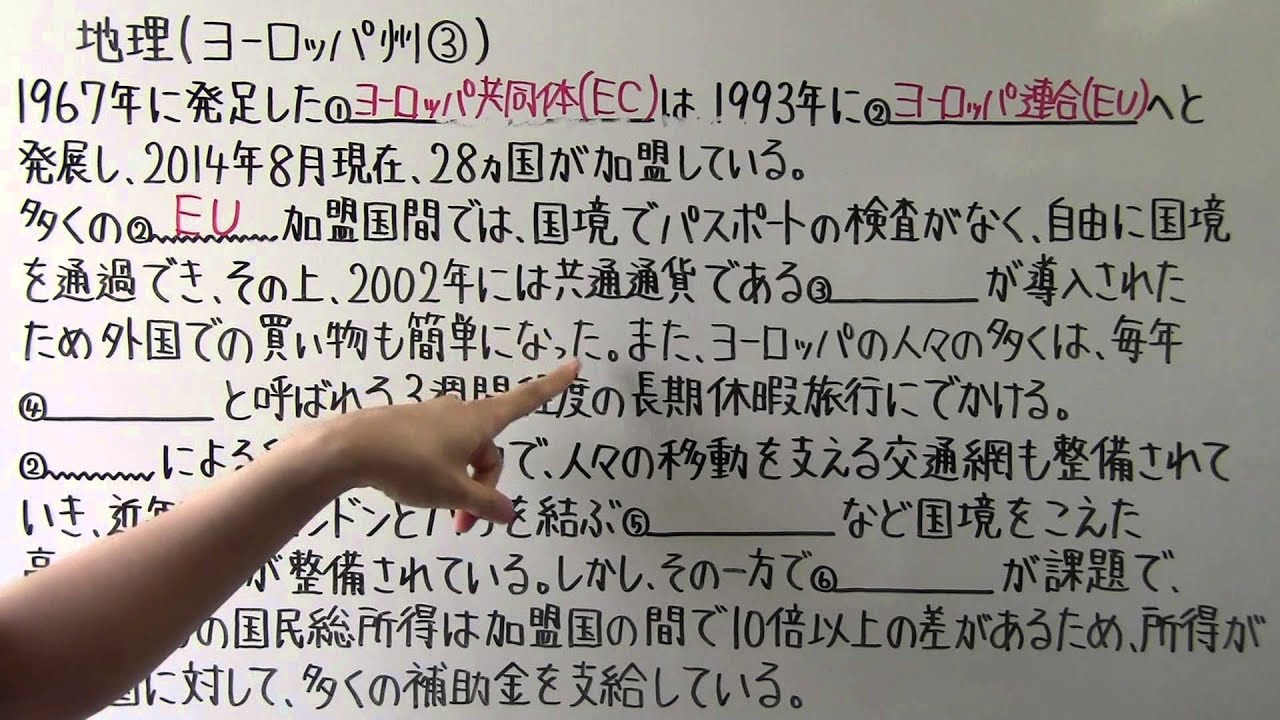 地理(ヨーロッパ州③)
1967年に発足した①ヨーロッパ共同体(EC)は1993年に②ヨーロッパ連合(EU)へと
発展し、2014年8月現在、28ヵ国が加盟している。
多くの②EU加盟国間では、国境でパスポートの検査がなく、自由に国境
を通過でき、その上、2002年には共通通貨である③ が導入された
ため外国での買い物も簡単になった。また、ヨーロッパの人々の多くは、毎年
④ と呼ばれる3週間程度の長期休暇旅行にでかける。
② による で、人々の移動を支える交通網も整備されて
いき、近年 ンドンとパリを結ぶ⑤ など国境をこえた
が整備されている。しかし、その一方で⑥ が課題で、
の国民総所得は加盟国の間で10倍以上の差があるため、所得が
国に対して、多くの補助金を支給している。